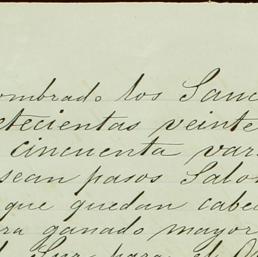 ombrado los Sanc
etecientas veinte
cincuenta vara
sean pasos Salo
que quedan cabec
ra ganado mayor
Sur para el